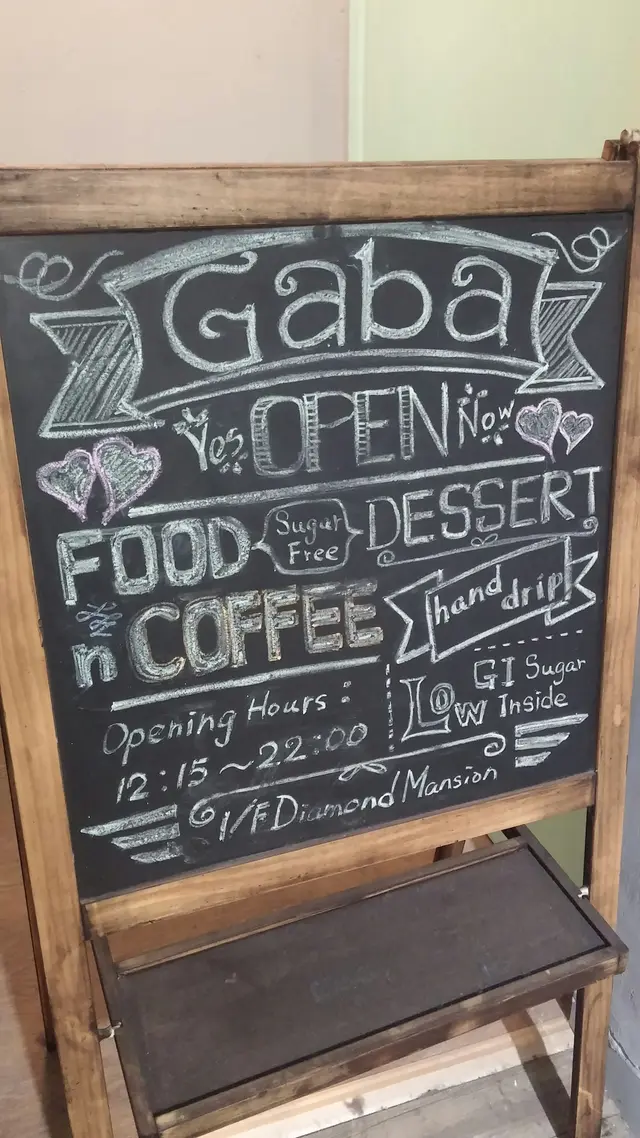 Gaba
Yes OPEN Now
FOOD Sugar Free DESSERT
n COFFEE hand drip
Opening Hours :
12:15~22:00
Low GI Sugar Inside
1/F Diamond Mansion